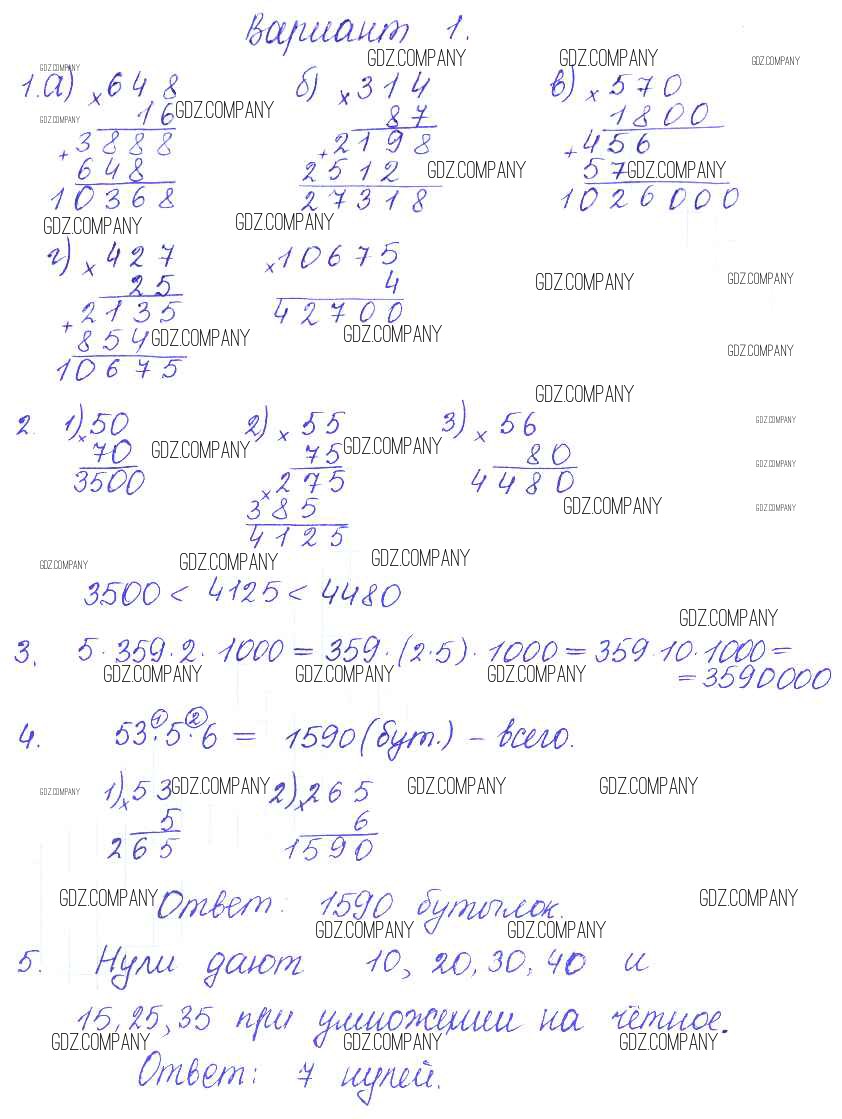 Вариант 1.
GDZ.COMPANY GDZ.COMPANY GDZ.COMPANY GDZ.COMPANY
1. а) × 648 б) × 314 в) × 570
GDZ.COMPANY 16 GDZ.COMPANY 87 1800
+ 3888 + 2198 + 456
648 2512 GDZ.COMPANY 57 GDZ.COMPANY
10368 27318 1026000
GDZ.COMPANY GDZ.COMPANY
г) × 427 × 10675
25 4 GDZ.COMPANY GDZ.COMPANY
+ 2135 42700
854 GDZ.COMPANY GDZ.COMPANY GDZ.COMPANY
10675
GDZ.COMPANY
2. 1) × 50 2) × 55 3) × 56 GDZ.COMPANY
70 GDZ.COMPANY 75 GDZ.COMPANY 80 GDZ.COMPANY
3500 × 275 4480
385 GDZ.COMPANY GDZ.COMPANY
4125
GDZ.COMPANY GDZ.COMPANY GDZ.COMPANY
3500 < 4125 < 4480
GDZ.COMPANY
3. 5·359·2·1000 = 359·(2·5)·1000 = 359·10·1000 =
GDZ.COMPANY GDZ.COMPANY GDZ.COMPANY = 3590000
4. 53·①5·②6 = 1590 (бут.) – всего.
GDZ.COMPANY 1) × 53 GDZ.COMPANY 2) × 265 GDZ.COMPANY GDZ.COMPANY
5 6
265 1590
GDZ.COMPANY Ответ: 1590 бутылок. GDZ.COMPANY
GDZ.COMPANY GDZ.COMPANY
5. Нули дают 10, 20, 30, 40 и
15, 25, 35 при умножении на чётное.
GDZ.COMPANY GDZ.COMPANY GDZ.COMPANY
Ответ: 7 нулей.